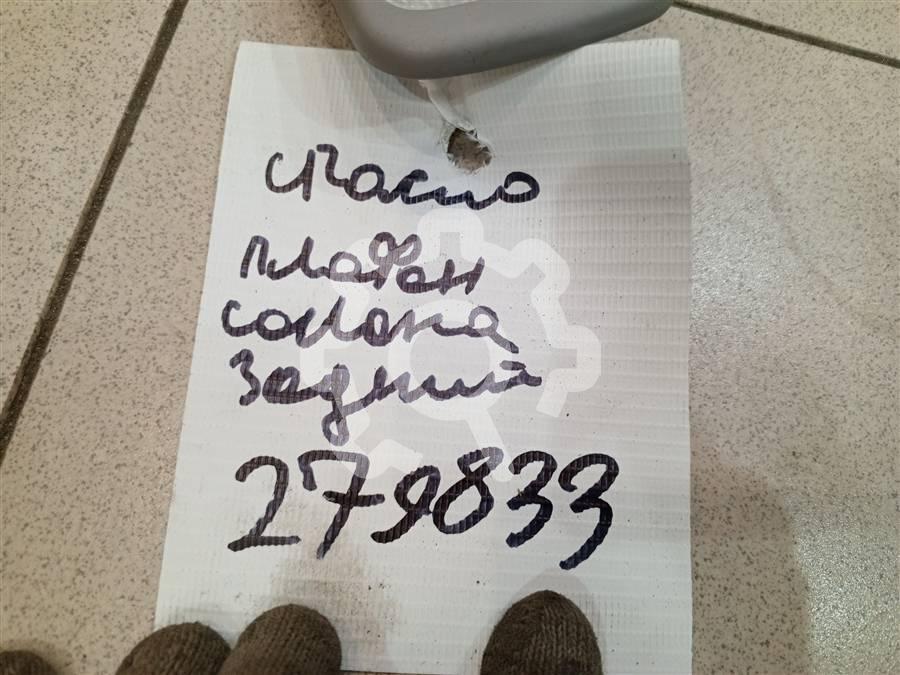 спасио
плафон
салона
задний
279833